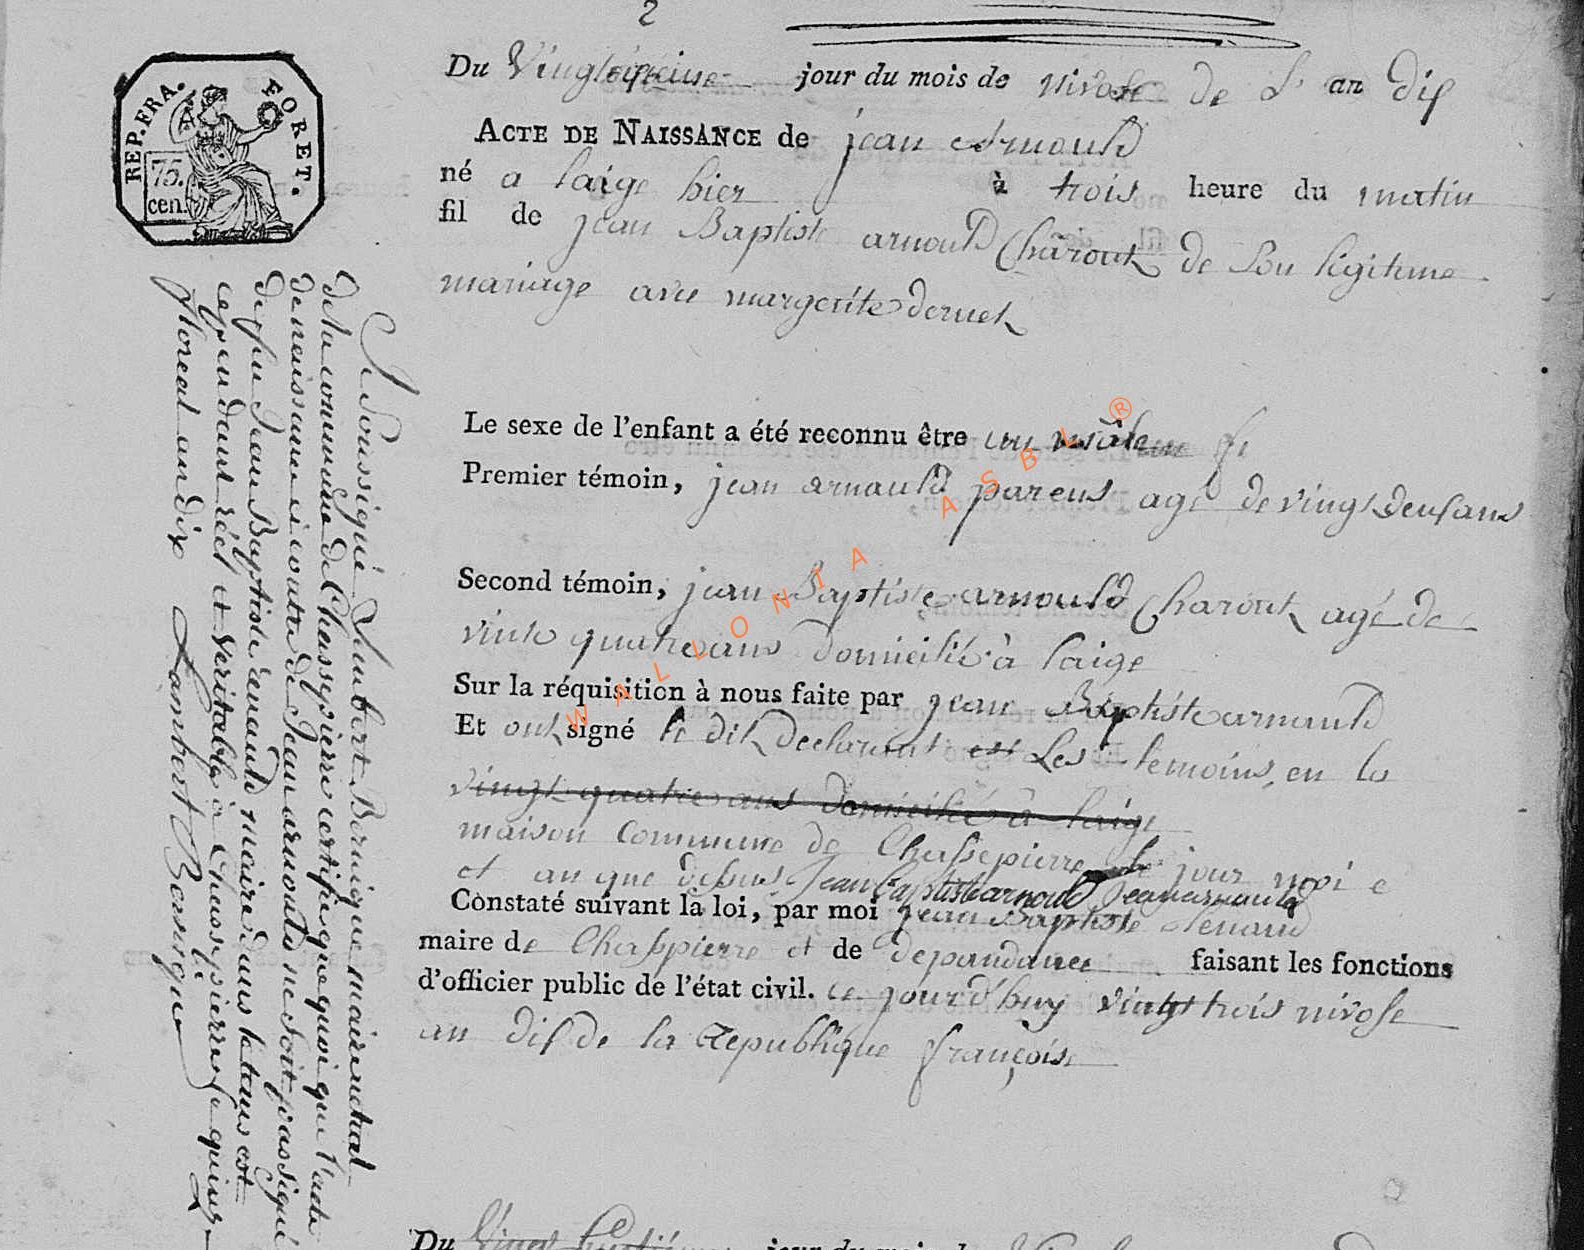 2
REP. FRA. FORET.
75.
cen.
Du jour du mois de nivose de L'an dix
ACTE DE NAISSANCE de jean Arnould
né a laige hier à trois heure du matin
fil de jean Baptist arnould Charout de Son légitime
mariage avec margerite
Le sexe de l'enfant a été reconnu être un mâle
Premier témoin, jean arnauld parens agé de vingt deux ans
Second témoin, jean Baptiste arnould Charout agé de
vinte quatre ans domicilié à laige
Sur la réquisition à nous faite par jean Baptiste arnauld
Et ont signé le dit declarant et Les temoins, en la
vingt quatre ans domicilié à laige
maison commune de Chassepierre le jour moi
et an que dessus Jean baptiste arnould Jean arnauld
Constaté suivant la loi, par moi jean Baptiste renaud
maire de Chasspierre et de depandance faisant les fonctions
d'officier public de l'état civil. ce jourd'huy vingt trois nivose
an dix de la republique françoise
Je Soussigné Lambert Bernique maire actuel
de la commune de Chassepierre certifie que quoi que l'acte
de naissance ci contre de Jean arnould ne soit pas signé
de feu Jean Baptiste renauld maire dans le tems est
cependant réél et veritable à Chassepierre le quinz
floreal an dix Lambert Bernique
Du jour du mois de
WALLONIA ASBL ®